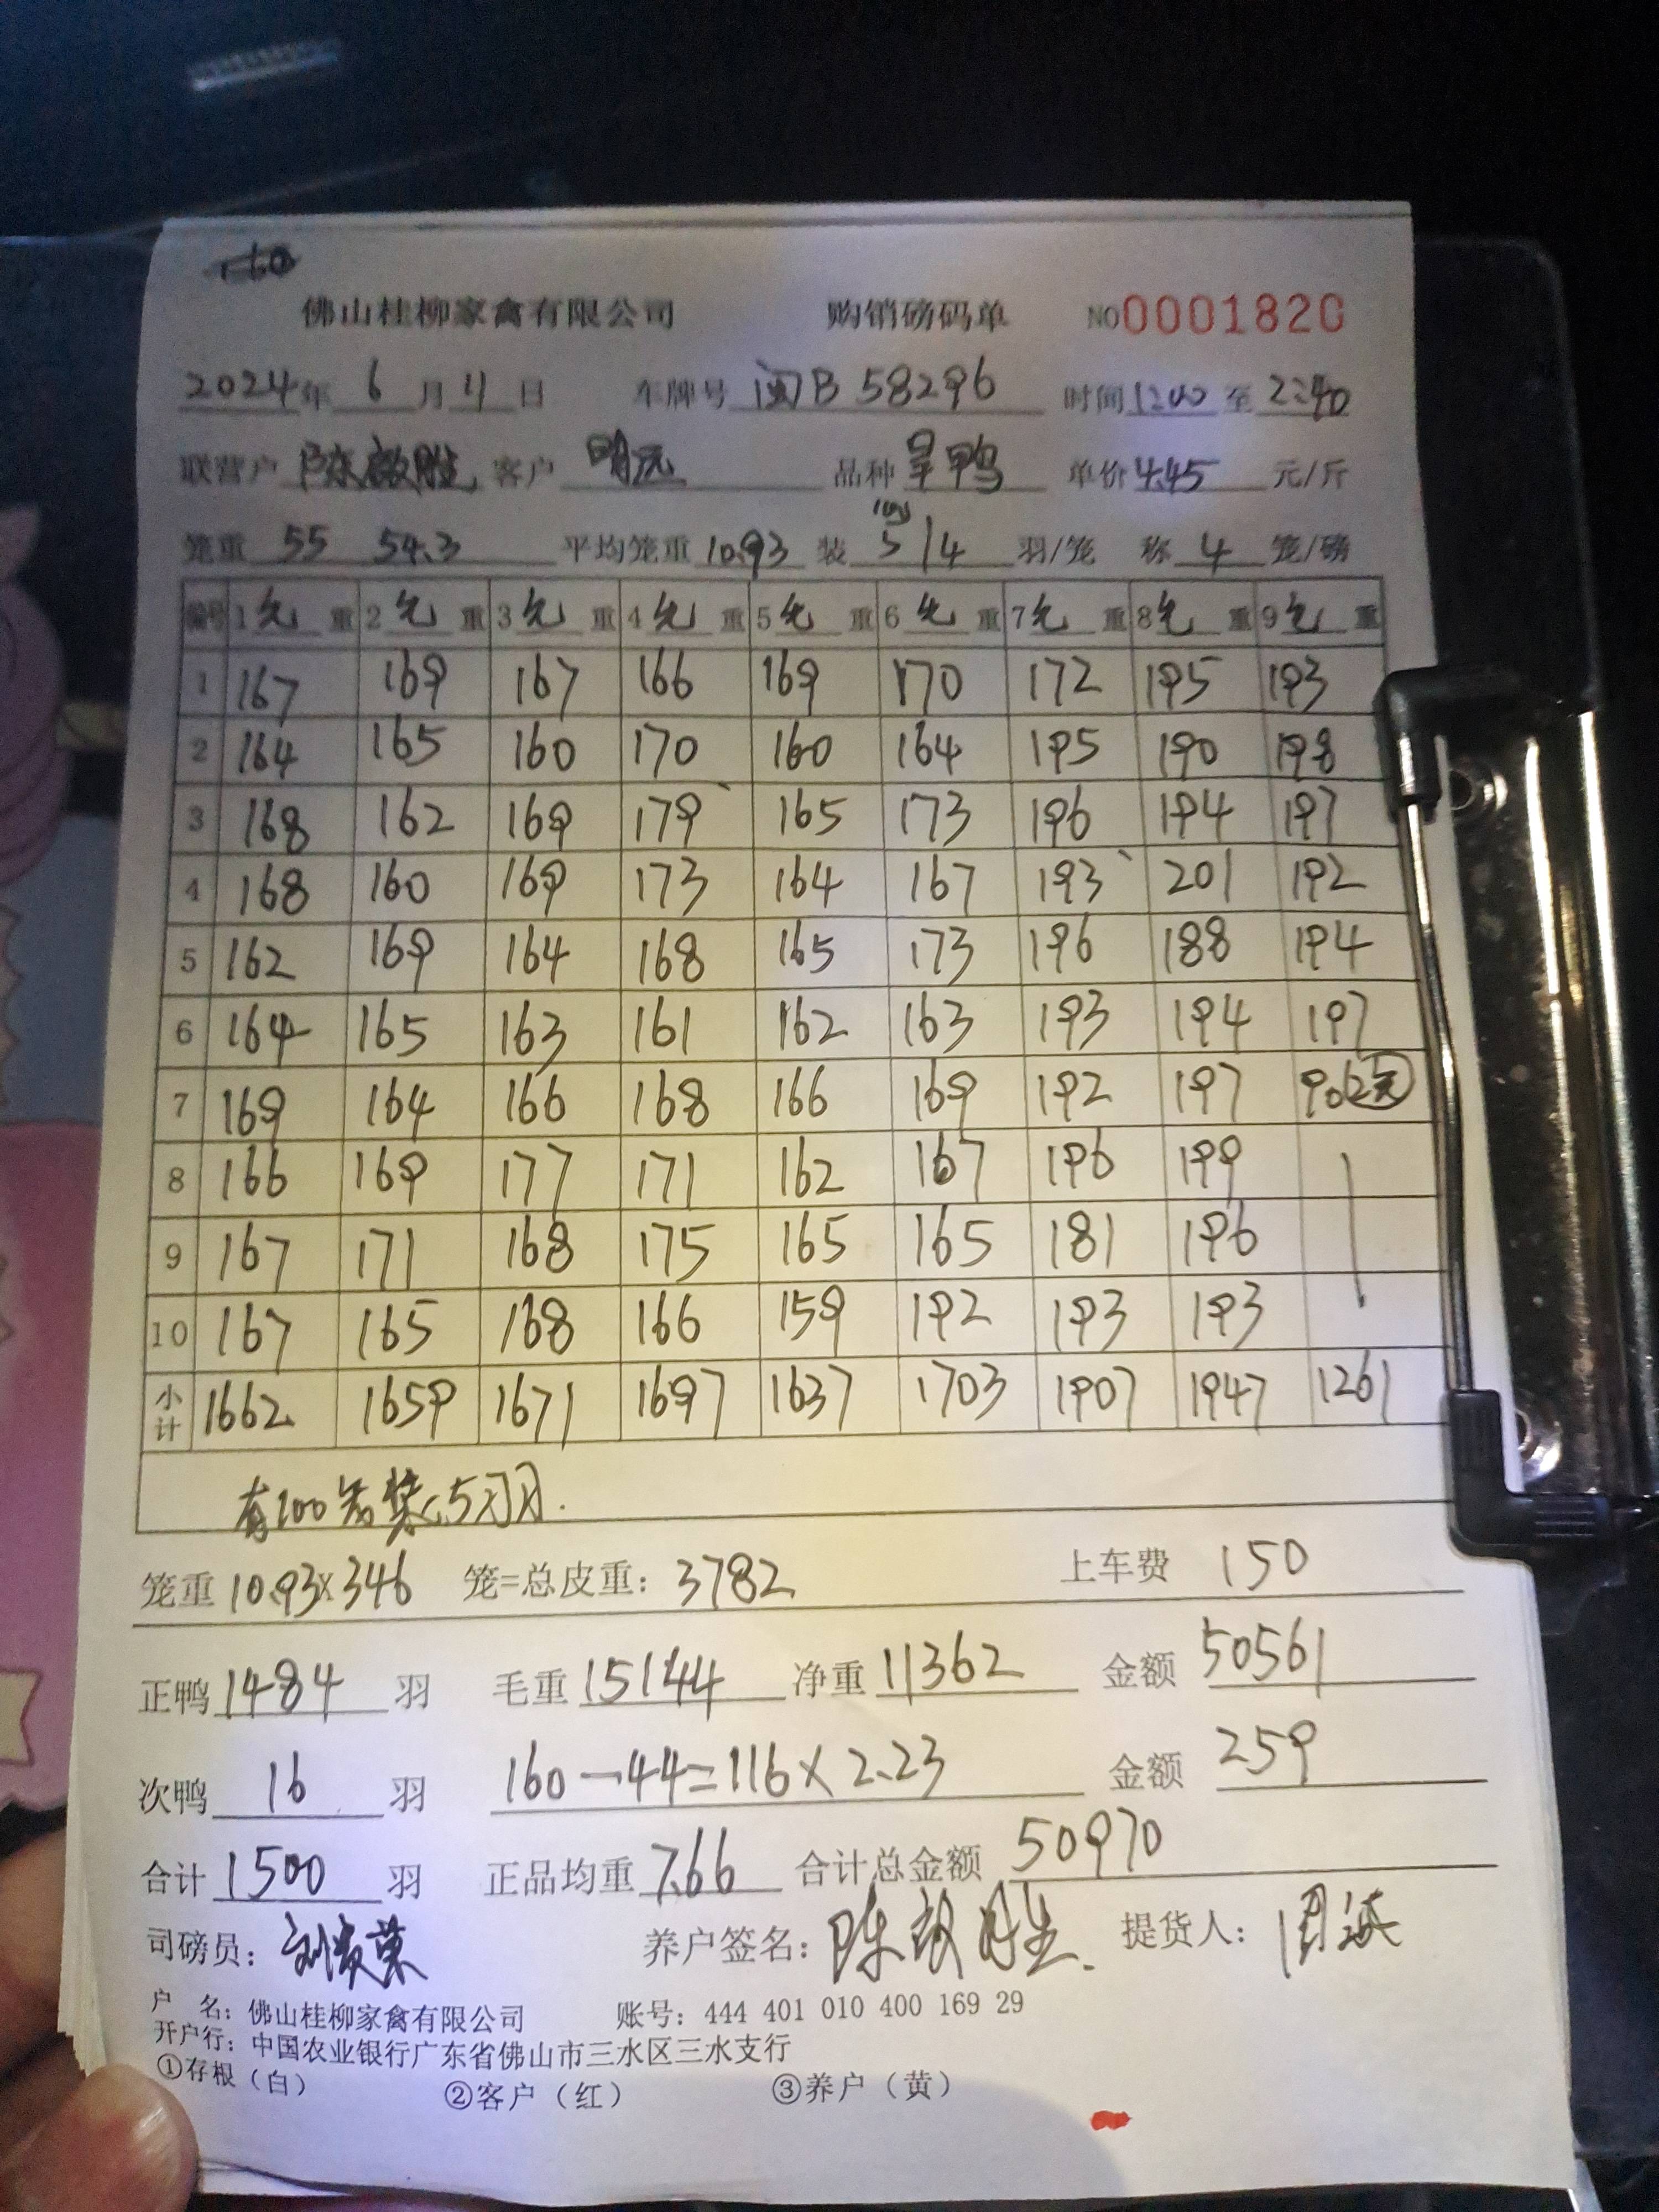 160
佛山桂柳家禽有限公司 购销磅码单 NO 0001820
2024年 6 月 11 日 车牌号 闽B 58296 时间 12:00 至 2:40
联营户 客户 明远 品种 旱鸭 单价 4.45 元/斤
笼重 55 54.3 平均笼重 10.93 装 5/4 羽/笼 称 4 笼/磅
编号 1 毛 重 2 毛 重 3 毛 重 4 毛 重 5 毛 重 6 毛 重 7 毛 重 8 毛 重 9 毛 重
1 167 169 167 166 169 170 172 195 193
2 164 165 160 170 160 164 195 190 198
3 168 162 169 179 165 173 196 194 197
4 168 160 169 173 164 167 193 201 192
5 162 169 164 168 165 173 196 188 194
6 164 165 163 161 162 163 193 194 197
7 169 164 166 168 166 169 192 197
8 166 169 177 171 162 167 196 199
9 167 171 168 175 165 165 181 196
10 167 165 168 166 159 192 193 193
小计 1662 1659 1671 1697 1637 1703 1907 1947 1261
有100笼装5羽.
笼重 10.93×346 笼=总皮重: 3782 上车费 150
正鸭 1484 羽 毛重 15144 净重 11362 金额 50561
次鸭 16 羽 160-44=116×2.23 金额 259
合计 1500 羽 正品均重 7.66 合计总金额 50970
司磅员: 养户签名: 提货人:
户 名: 佛山桂柳家禽有限公司 账号: 444 401 010 400 169 29
开户行: 中国农业银行广东省佛山市三水区三水支行
①存根(白) ②客户(红) ③养户(黄)